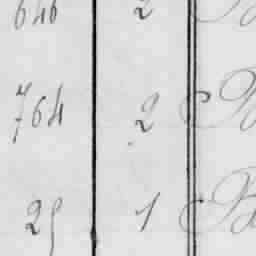 646 2
764 2
25 1